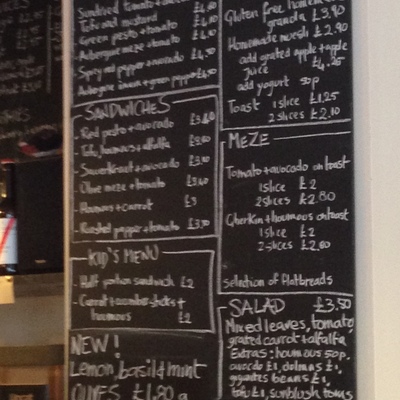 Sundried tomato
Tofu and mustard
Green pesto + tomato £4.10
Aubergine meze + tomato
Spicy red pepper + avocado £4.50
Aubergine + green pepper
SANDWICHES
Red pesto + avocado £3.40
Tofu, houmous + alfalfa
Sauerkraut + avocado
Olive meze + tomato £3.40
Houmous + carrot £3
Roasted pepper + tomato
KID'S MENU
Half portion sandwich £2
Carrot + cucumber sticks +
houmous £2
NEW!
Lemon, basil & mint
OLIVES £1.80
Gluten free
granola £3.90
Homemade muesli £2.90
add grated apple + apple
juice £4.25
add yogurt 50p
Toast 1 slice £1.25
2 slices £2.10
MEZE
Tomato + avocado on toast
1 slice £2
2 slices £2.80
Gherkin + houmous on toast
1 slice £2
2 slices £2.80
Selection of flatbreads
SALAD £3.50
Mixed leaves, tomato,
grated carrot + alfalfa
Extras: houmous 50p,
avocado £1, dolmas £1,
gigantes beans £1,
tofu £1, sunblush toms